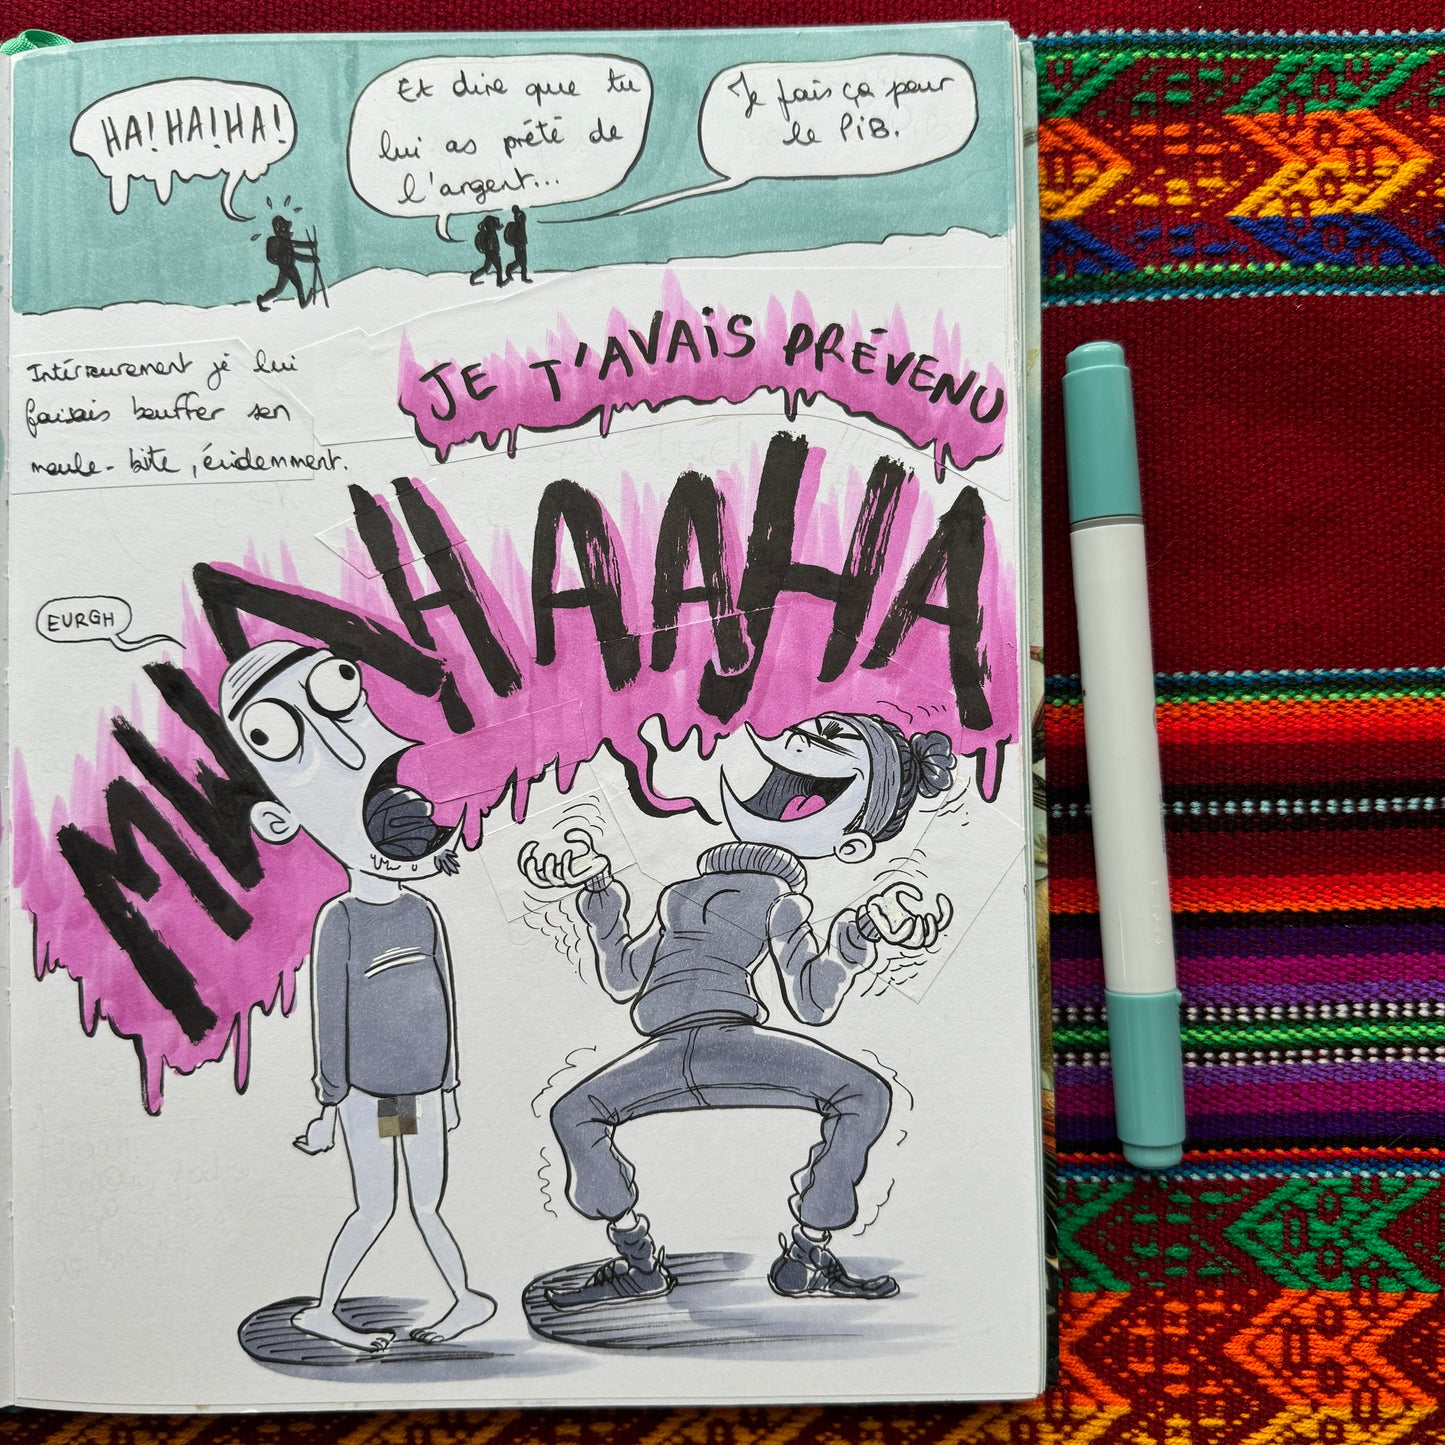 HA! HA! HA!
Et dire que tu
lui as prêté de
l'argent...
Je fais ça pour
le PiB.
JE T'AVAiS PRÉVENU
Intérieurement je lui
faisais bouffer son
moule-bite, évidemment.
EURGH
MWAHAAAHA